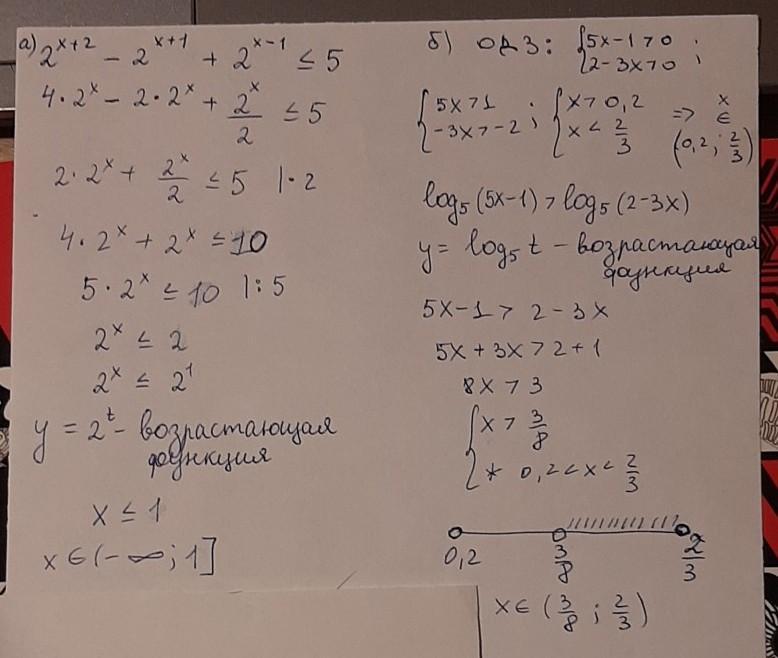 а) 2^(x+2) - 2^(x+1) + 2^(x-1) ≤ 5
4·2^x - 2·2^x + 2^x/2 ≤ 5
2·2^x + 2^x/2 ≤ 5 |·2
4·2^x + 2^x ≤ 10
5·2^x ≤ 10 |:5
2^x ≤ 2
2^x ≤ 2^1
y = 2^t - возрастающая
функция
x ≤ 1
x ∈ (-∞; 1]
б) ОДЗ: { 5x-1>0
2-3x>0 ;
{ 5x>1
-3x>-2 ; { x>0,2
x < 2/3 => x ∈ (0,2; 2/3)
log₅(5x-1) > log₅(2-3x)
y = log₅ t - возрастающая
функция
5x-1 > 2-3x
5x+3x>2+1
8x > 3
{ x > 3/8
* 0,2<x< 2/3
0,2 3/8 2/3
x ∈ (3/8 ; 2/3)